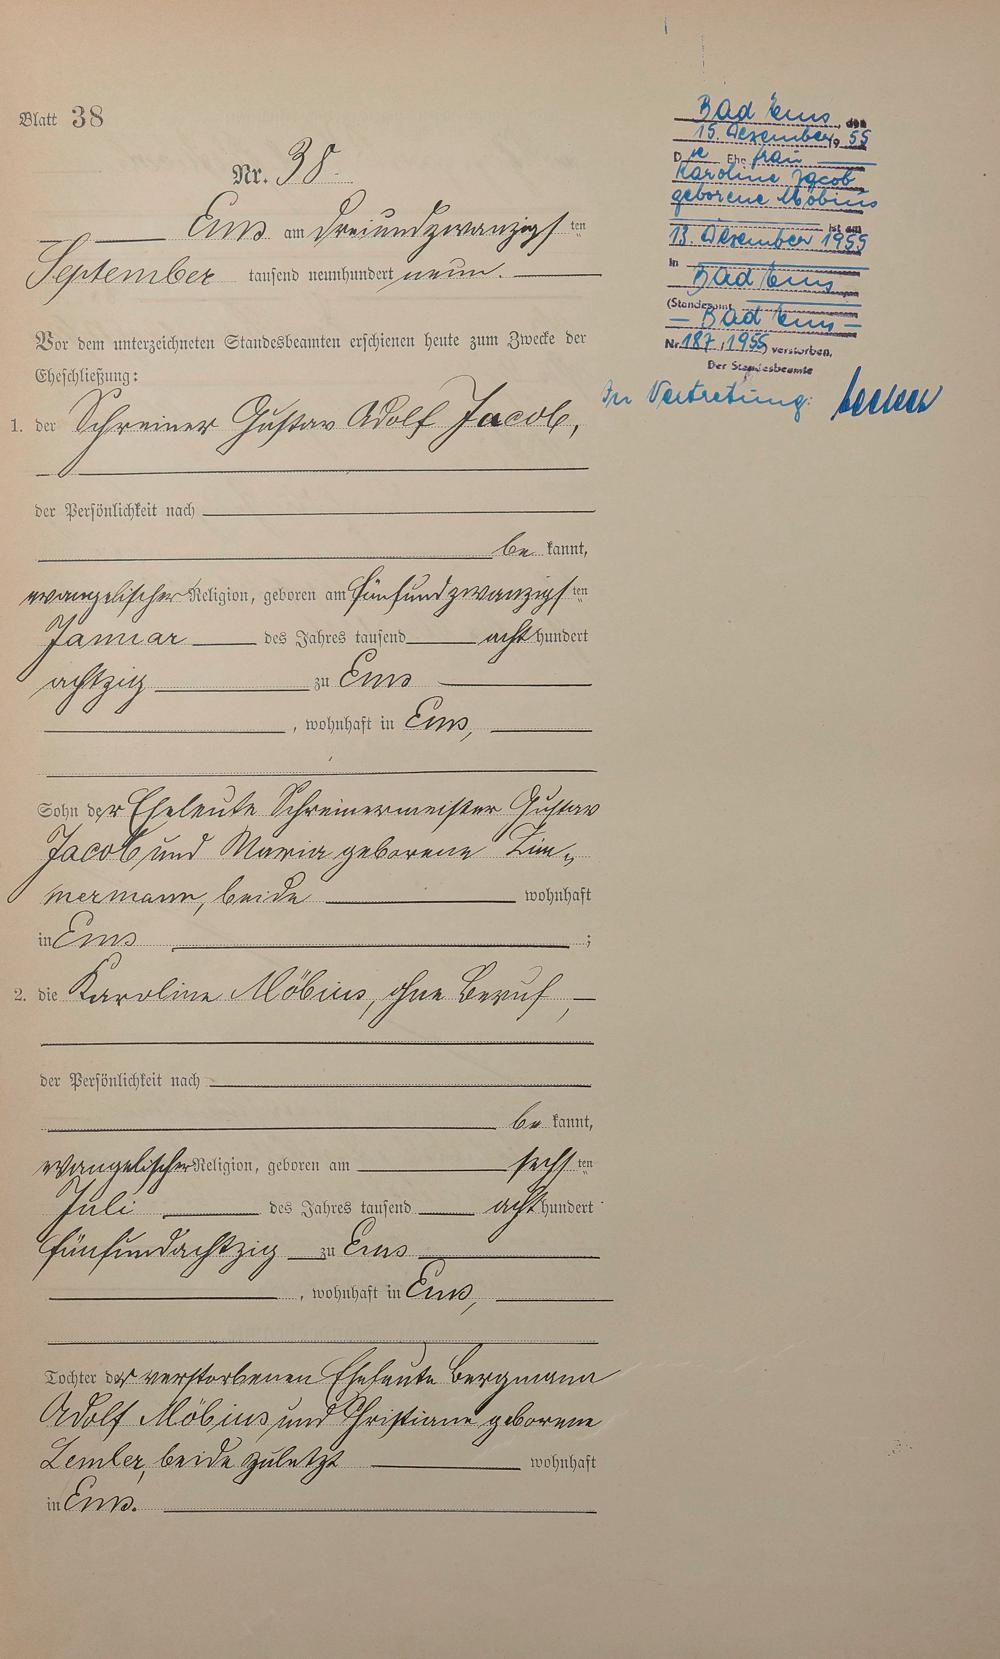 Blatt 38
Nr. 38.
Ems am dreiundzwanzigsten
September tausend neunhundert neun.
Vor dem unterzeichneten Standesbeamten erschienen heute zum Zwecke der
Eheschließung:
1. der Schreiner Gustav Adolf Jacob,
der Persönlichkeit nach
be kannt,
evangelischer Religion, geboren am fünfundzwanzigsten
Januar des Jahres tausend acht hundert
achtzig zu Ems
, wohnhaft in Ems,
Sohn der Eheleute Schreinermeister Gustav
Jacob und Maria geborene Zim-
mermann, beide wohnhaft
in Ems ;
2. die Karoline Möbius, ohne Beruf,
der Persönlichkeit nach
be kannt,
evangelischer Religion, geboren am sechsten
Juli des Jahres tausend acht hundert
fünfundachtzig zu Ems
, wohnhaft in Ems,
Tochter der verstorbenen Eheleute Bergmann
Adolf Möbius und Christiane geborene
Lemler, beide zuletzt wohnhaft
in Ems.
Bad Ems, den
15. Dezember 1955
Die Ehefrau
Karoline Jacob
geborene Möbius
ist am
13. Dezember 1955
in
Bad Ems
(Standesamt
— Bad Ems —
Nr. 187/1955) verstorben.
Der Standesbeamte
In Vertretung: Becker